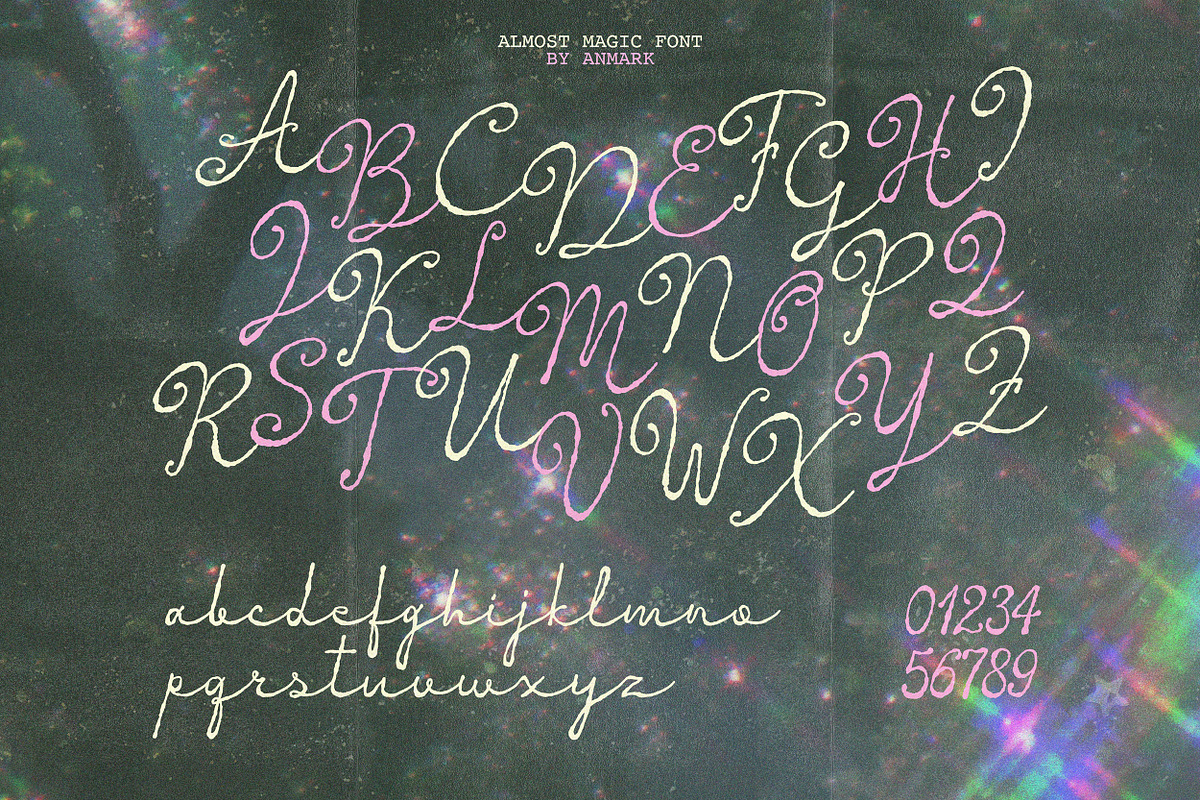 ALMOST MAGIC FONT
BY ANMARK
A B C D E F G H I
J K L M N O P Q
R S T U V W X Y Z
abcdefghijklmno
pqrstuvwxyz
01234
56789